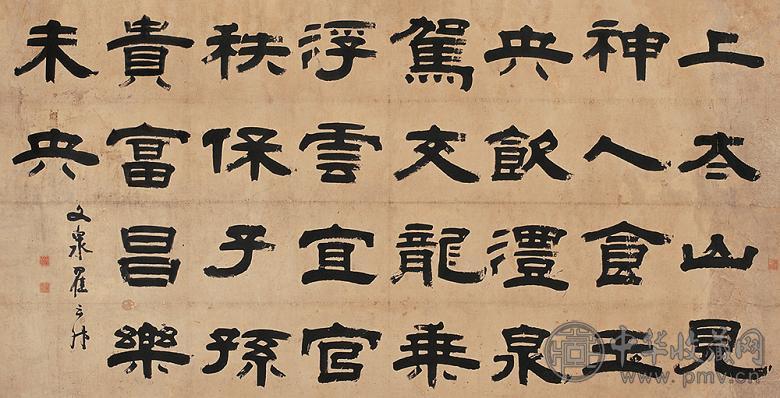 上太山見
神人食玉
央飲澧泉
駕文龍乘
浮雲宜官
秩保子孫
貴富昌樂
未央
文泉翟云升
中华收藏网
www.pmv.cn